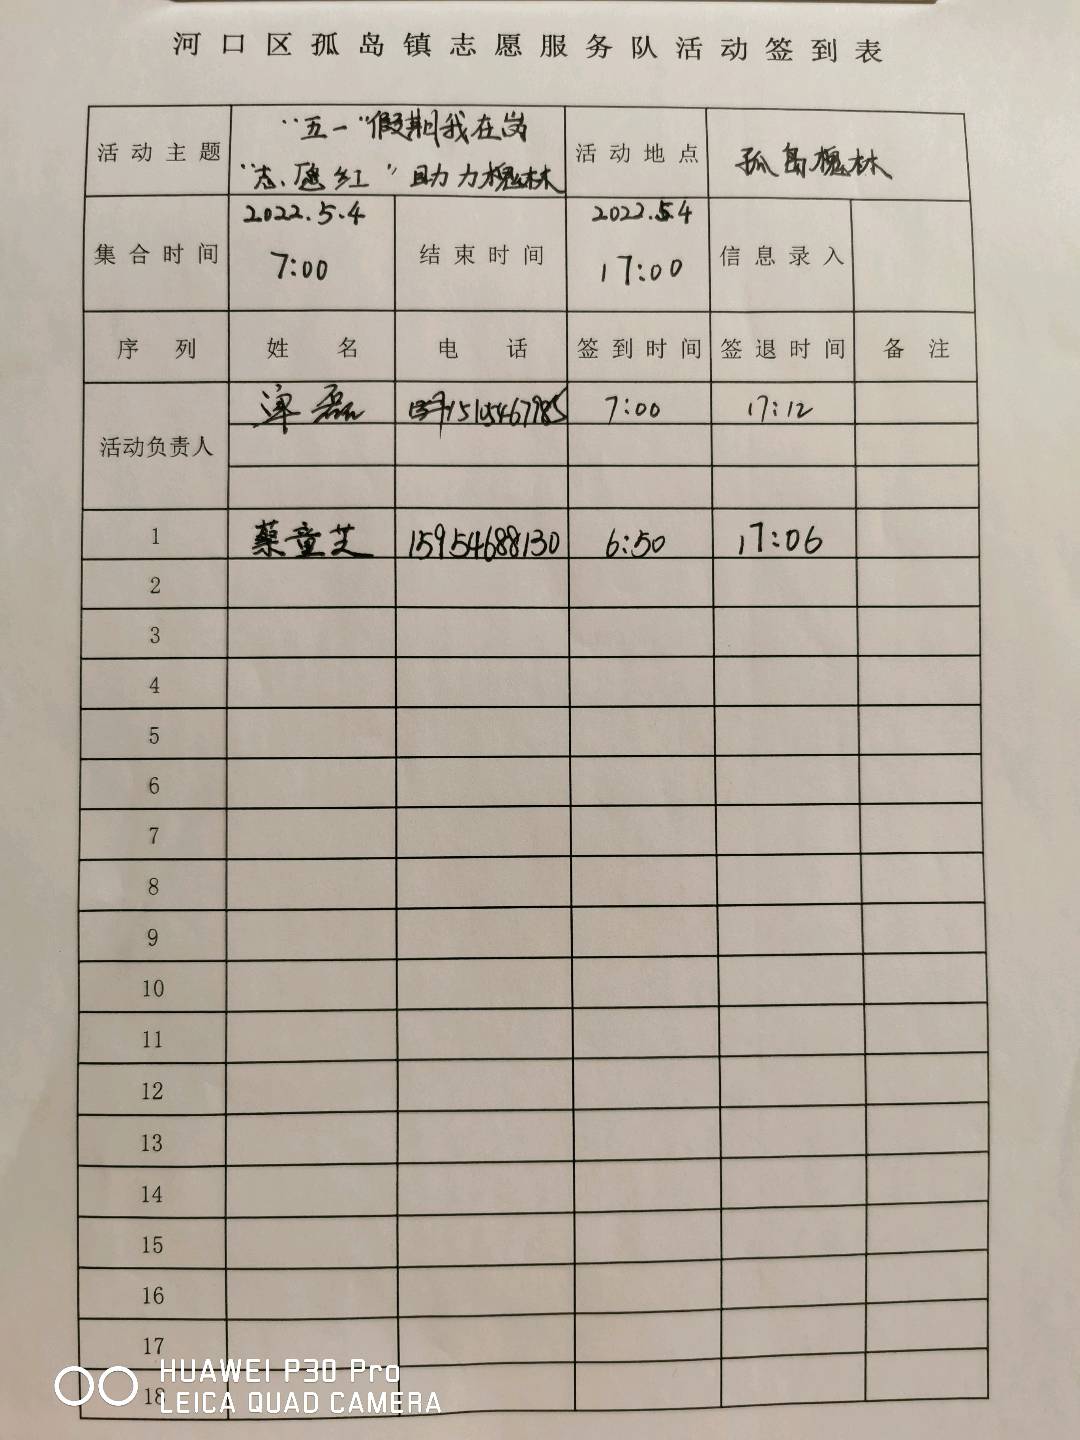 河口区孤岛镇志愿服务队活动签到表
活动主题 "五一"假期我在岗 活动地点 孤岛槐林
"志愿红"助力槐林
集合时间 2022.5.4 7:00 结束时间 2022.5.4 17:00 信息录入
序列 姓名 电话 签到时间 签退时间 备注
活动负责人 磊 15105467985 7:00 17:12
1 蔡童芝 15954688130 6:50 17:06
2
3
4
5
6
7
8
9
10
11
12
13
14
15
16
17
18
HUAWEI P30 Pro
LEICA QUAD CAMERA